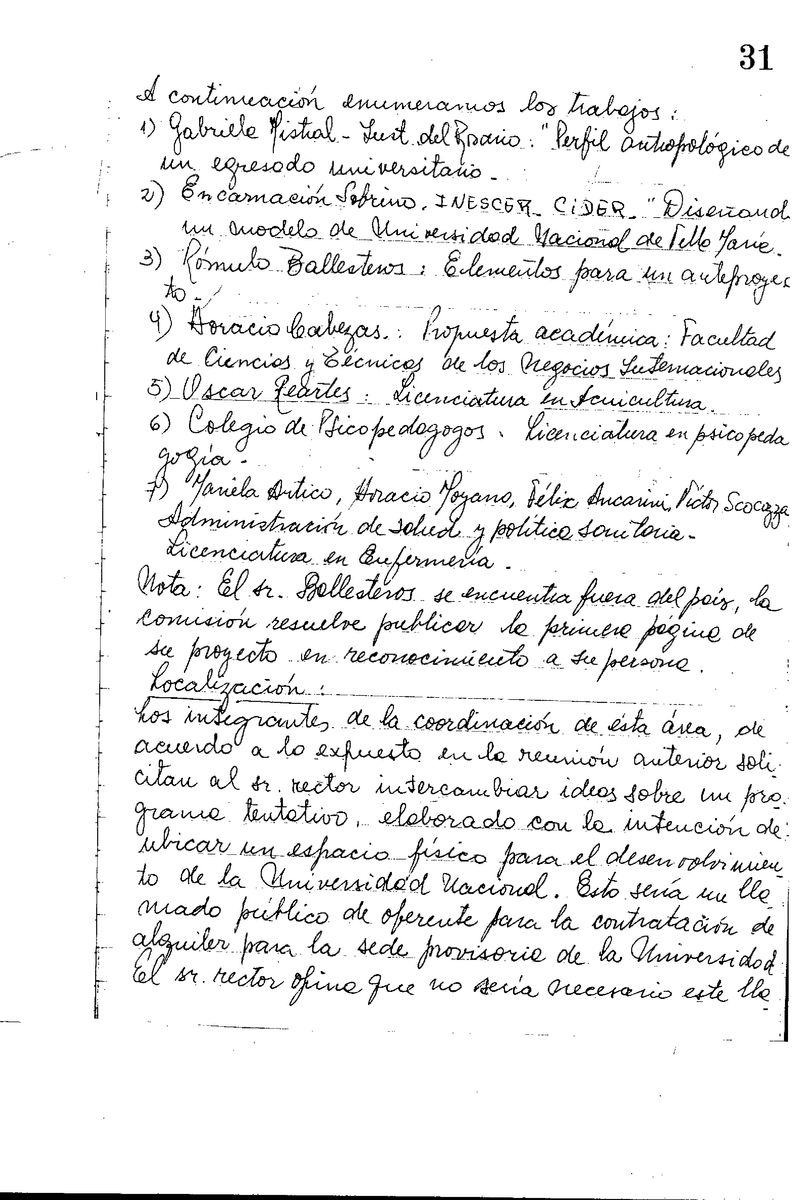 31
A continuación enumeramos los trabajos:
1) Gabriela Mistral - Inst. del Rosario: "Perfil antropológico de
un egresado universitario -
2) Encarnación Sobrino. INESCER - CIDER - "Diseñand
un modelo de Universidad Nacional de Villa María.
3) Rómulo Ballesteros: Elementos para un anteproyec
to -
4) Horacio Cabezas.: Propuesta académica: Facultad
de Ciencias y Técnicas de los Negocios Internacionales
5) Oscar Reartes: Licenciatura en Acuicultura.
6) Colegio de Psicopedagogos. Licenciatura en psicopeda
gogía -
7) Mariela Artico, Horacio Moyano, Félix Ancarini, Víctor
Administración de salud y política sanitaria -
Licenciatura en Enfermería.
Nota: El sr. Ballesteros se encuentra fuera del país, la
comisión resuelve publicar la primera página de
su proyecto en reconocimiento a su persona.
Localización:
Los integrantes de la coordinación de esta área, de
acuerdo a lo expuesto en la reunión anterior soli
citan al sr. rector intercambiar ideas sobre un pro
grama tentativo, elaborado con la intención de
ubicar un espacio físico para el desenvolvimien
to de la Universidad Nacional. Esto sería un lla
mado público de oferente para la contratación de
alquiler para la sede provisoria de la Universidad
El sr. rector opina que no sería necesario este lla